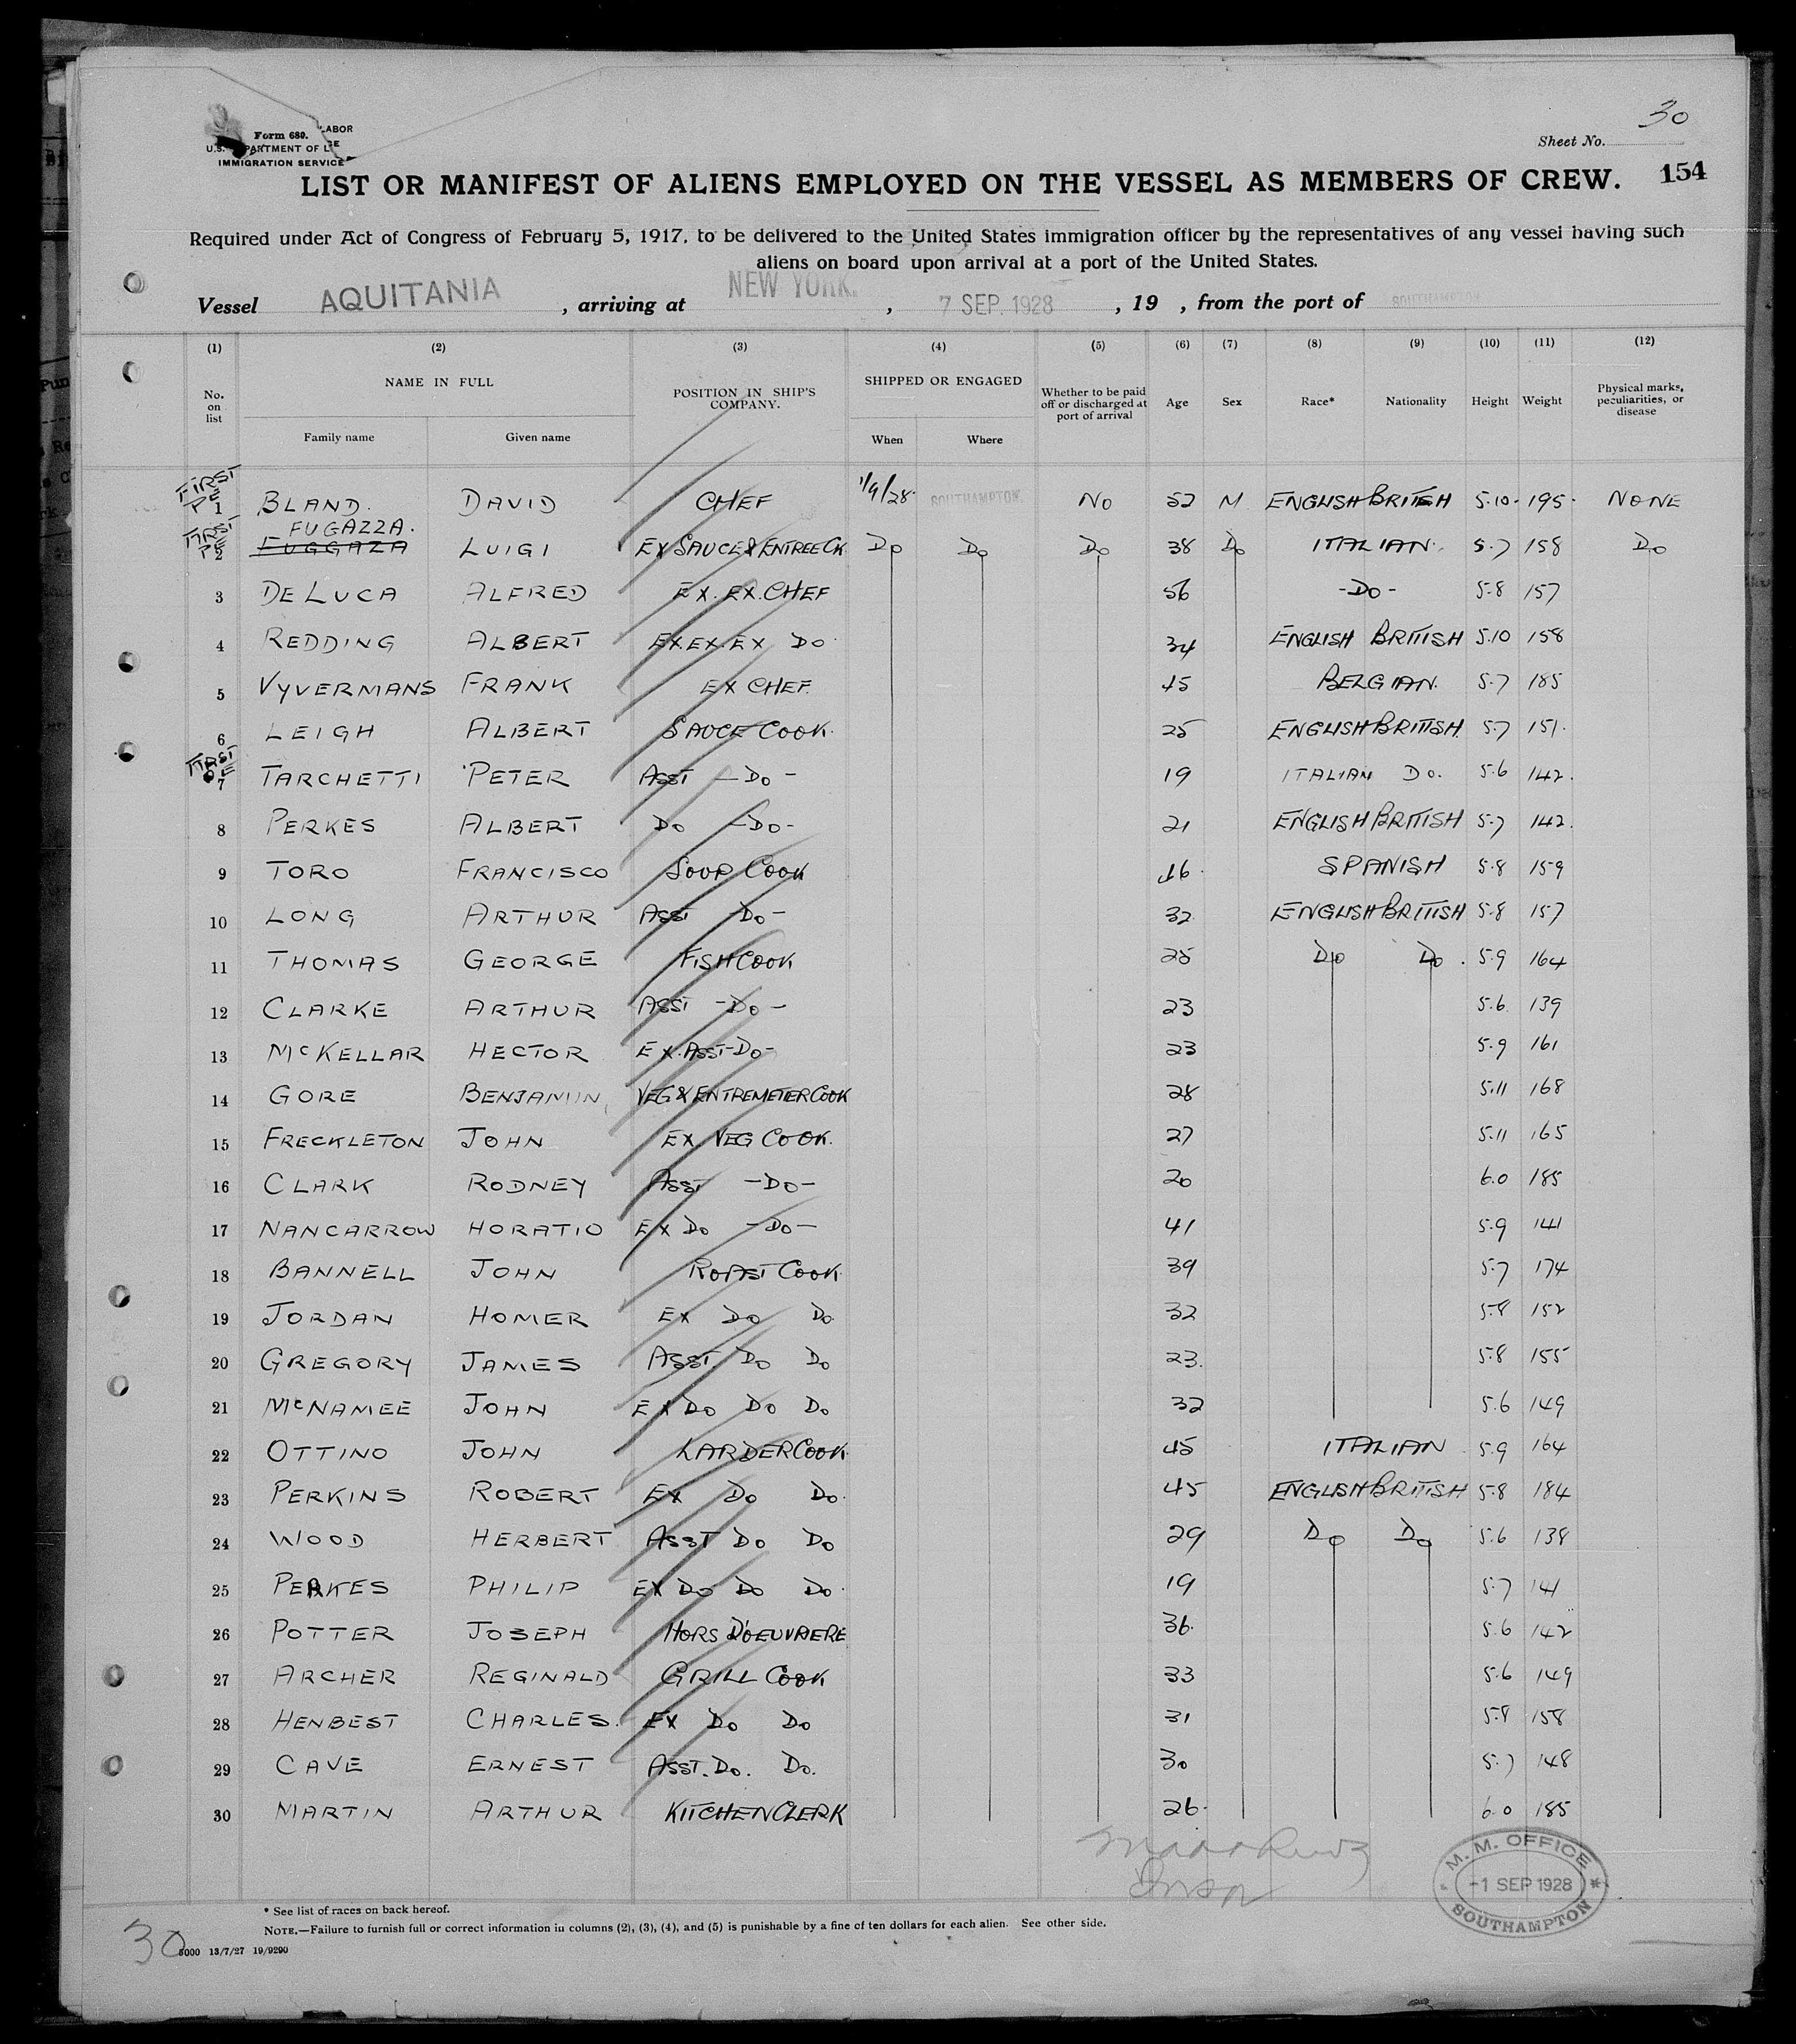 30
Form 680.
LABOR
U.S. DEPARTMENT OF L
IMMIGRATION SERVICE
Sheet No.
LIST OR MANIFEST OF ALIENS EMPLOYED ON THE VESSEL AS MEMBERS OF CREW. 154
Required under Act of Congress of February 5, 1917, to be delivered to the United States immigration officer by the representatives of any vessel having such
aliens on board upon arrival at a port of the United States.
Vessel AQUITANIA , arriving at NEW YORK. , 7 SEP. 1928 , 19 , from the port of SOUTHAMPTON
(1) (2) (3) (4) (5) (6) (7) (8) (9) (10) (11) (12)
No. on list NAME IN FULL POSITION IN SHIP'S COMPANY. SHIPPED OR ENGAGED Whether to be paid off or discharged at port of arrival Age Sex Race* Nationality Height Weight Physical marks, peculiarities, or disease
Family name Given name When Where
FIRST PE 1 BLAND. DAVID CHEF 1/9/28 SOUTHAMPTON. NO 52 M ENGLISH BRITISH 5.10 195 NONE
FUGAZZA.
FIRST PE 2 FUGGAZA LUIGI EX SAUCE & ENTREE CK Do Do Do 38 Do ITALIAN 5.7 158 Do
3 DE LUCA ALFRED EX. EX. CHEF 56 -DO- 5.8 157
4 REDDING ALBERT EX EX. EX DO 34 ENGLISH BRITISH 5.10 158
5 VYVERMANS FRANK EX CHEF. 45 BELGIAN. 5.7 185
6 LEIGH ALBERT SAUCE COOK. 25 ENGLISH BRITISH. 5.7 151.
FIRST PE 7 TARCHETTI PETER ASST -DO- 19 ITALIAN DO. 5.6 142.
8 PERKES ALBERT DO -DO- 21 ENGLISH BRITISH 5.7 142.
9 TORO FRANCISCO SOUP COOK 46 SPANISH 5.8 159
10 LONG ARTHUR ASST -DO- 32 ENGLISH BRITISH 5.8 157
11 THOMAS GEORGE FISH COOK 25 Do Do 5.9 164
12 CLARKE ARTHUR ASST -DO- 23 5.6 139
13 McKELLAR HECTOR EX. ASST -DO- 23 5.9 161
14 GORE BENJAMIN VEG & ENTREMETIER COOK 28 5.11 168
15 FRECKLETON JOHN EX VEG COOK. 27 5.11 165
16 CLARK RODNEY ASST -DO- 20 6.0 185
17 NANCARROW HORATIO EX DO -DO- 41 5.9 141
18 BANNELL JOHN ROAST COOK 39 5.7 174
19 JORDAN HOMER EX DO DO 32 5.8 152
20 GREGORY JAMES ASST. DO DO 23. 5.8 155
21 McNAMEE JOHN EX DO DO DO 32 5.6 149
22 OTTINO JOHN LARDER COOK 45 ITALIAN 5.9 164
23 PERKINS ROBERT EX DO DO. 45 ENGLISH BRITISH 5.8 184
24 WOOD HERBERT ASST DO DO 29 Do Do 5.6 138
25 PERKES PHILIP EX DO DO DO. 19 5.7 141
26 POTTER JOSEPH HORS D'OEUVRIERE 36. 5.6 142
27 ARCHER REGINALD GRILL COOK 33 5.6 149
28 HENBEST CHARLES. EX DO DO 31 5.8 158
29 CAVE ERNEST ASST. DO. DO. 30 5.7 148
30 MARTIN ARTHUR KITCHEN CLERK 26. 6.0 185
M. M. OFFICE
-1 SEP 1928
SOUTHAMPTON
* See list of races on back hereof.
NOTE.—Failure to furnish full or correct information in columns (2), (3), (4), and (5) is punishable by a fine of ten dollars for each alien. See other side.
30
5000 13/7/27 19/9290